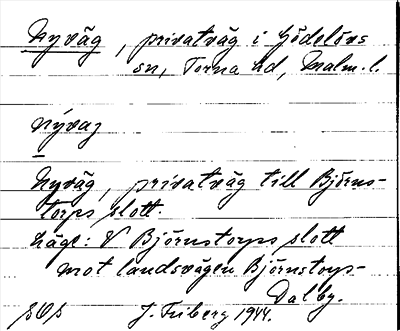 Nyväg, privatväg i Gödelövs
sn, Torna hd, Malm. l.
nývaz
Nyväg, privatväg till Björns-
torps slott.
Läge: V Björnstorps slott
mot landsvägen Björnstorp-
Dalby.
J. Friberg 1944.